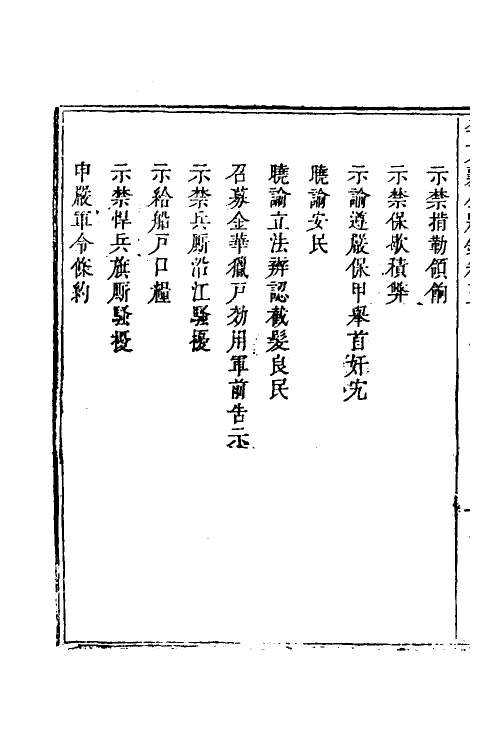 示禁掯勒領餉
示禁保歇積弊
示諭遵嚴保甲舉首奸宄
曉諭安民
曉諭立法辨認截髮良民
召募金華獵戸効用軍前告示
示禁兵厮沿江騷擾
示給船戸口糧
示禁悍兵旗厮騷擾
申嚴軍令條約